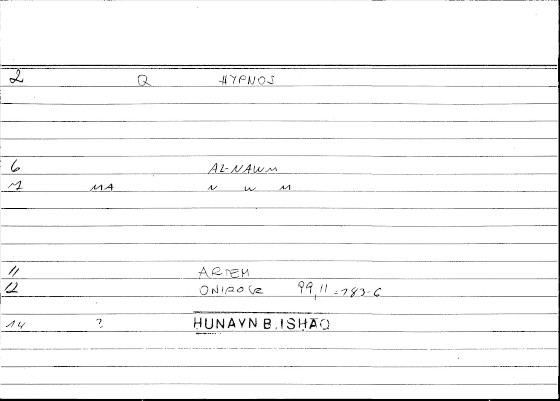 2 Q HYPNOS
6 AL-NAWM
7 MA N W M
11 ARTEM
12 ONIROCR 99,11 = 183-6
14 2 HUNAYN B. ISHAQ